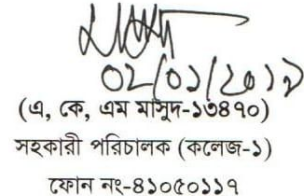 ০২/০১/২০১৯
(এ, কে, এম মাসুদ-১৩৪৭০)
সহকারী পরিচালক (কলেজ-১)
ফোন নং-৪১০৫০১১৭